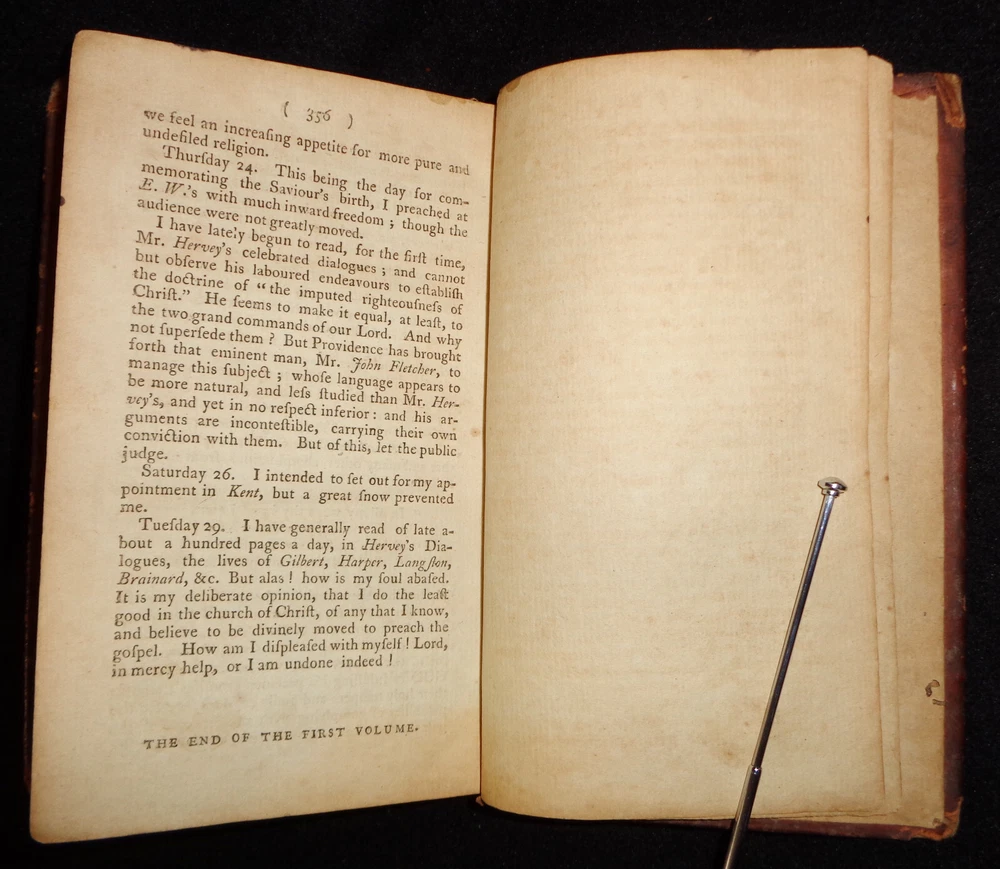 ( 356 )
we feel an increaſing appetite for more pure and
undefiled religion.
Thurſday 24. This being the day for com-
memorating the Saviour's birth, I preached at
E. W.'s with much inward freedom ; though the
audience were not greatly moved.
I have lately begun to read, for the firſt time,
Mr. Hervey's celebrated dialogues ; and cannot
but obſerve his laboured endeavours to eſtabliſh
the doctrine of "the imputed righteouſneſs of
Chriſt." He ſeems to make it equal, at leaſt, to
the two grand commands of our Lord. And why
not ſuperſede them ? But Providence has brought
forth that eminent man, Mr. John Fletcher, to
manage this ſubject ; whoſe language appears to
be more natural, and leſs ſtudied than Mr. Her-
vey's, and yet in no reſpect inferior : and his ar-
guments are inconteſtible, carrying their own
conviction with them. But of this, let the public
judge.
Saturday 26. I intended to ſet out for my ap-
pointment in Kent, but a great ſnow prevented
me.
Tueſday 29. I have generally read of late a-
bout a hundred pages a day, in Hervey's Dia-
logues, the lives of Gilbert, Harper, Langſton,
Brainard, &c. But alas ! how is my ſoul abaſed.
It is my deliberate opinion, that I do the leaſt
good in the church of Chriſt, of any that I know,
and believe to be divinely moved to preach the
goſpel. How am I diſpleaſed with myſelf ! Lord,
in mercy help, or I am undone indeed !
THE END OF THE FIRST VOLUME.